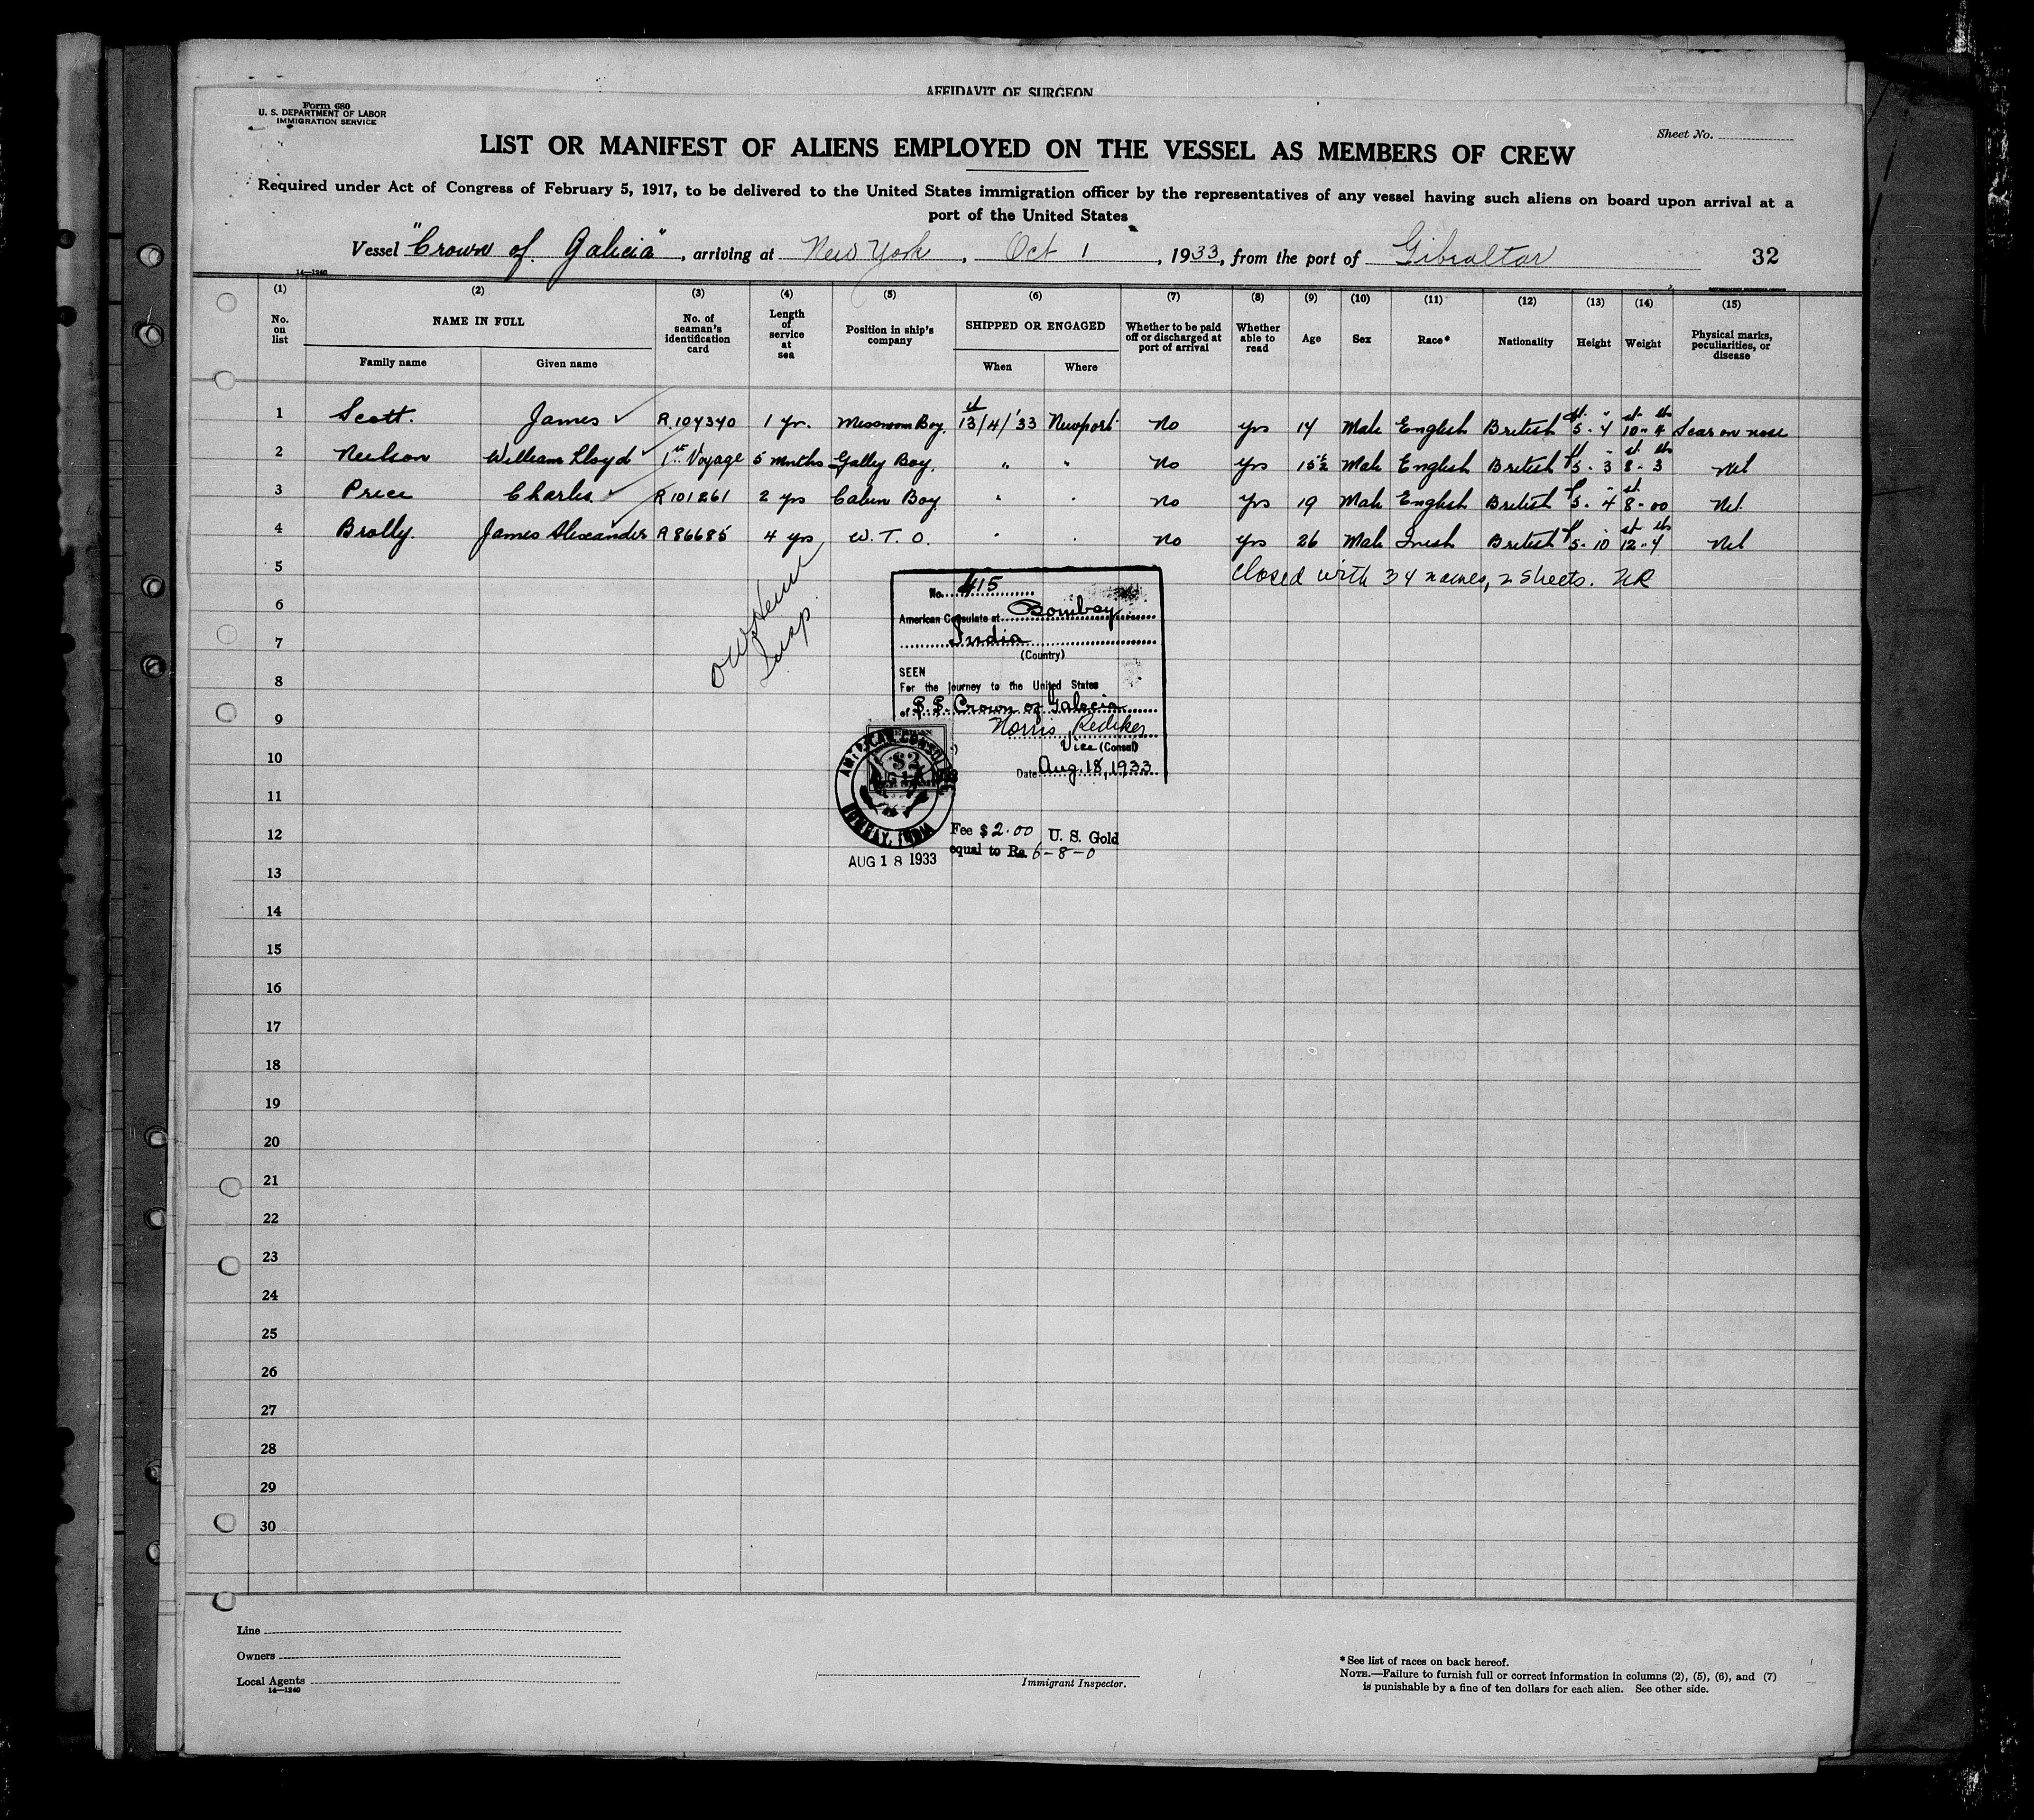 AFFIDAVIT OF SURGEON
Form 680
U. S. DEPARTMENT OF LABOR
IMMIGRATION SERVICE
Sheet No.
LIST OR MANIFEST OF ALIENS EMPLOYED ON THE VESSEL AS MEMBERS OF CREW
Required under Act of Congress of February 5, 1917, to be delivered to the United States immigration officer by the representatives of any vessel having such aliens on board upon arrival at a
port of the United States
Vessel "Crown of Galicia", arriving at New York, Oct 1, 1933, from the port of Gibraltar 32
14—1240
(1) (2) (3) (4) (5) (6) (7) (8) (9) (10) (11) (12) (13) (14) (15)
No. on list NAME IN FULL Family name Given name No. of seaman's identification card Length of service at sea Position in ship's company SHIPPED OR ENGAGED When Where Whether to be paid off or discharged at port of arrival Whether able to read Age Sex Race* Nationality Height Weight Physical marks, peculiarities, or disease
1 Scott. James R.104340 1 yr. Messroom Boy. 13/4/'33 Newport No yes 14 Male English British 5-4 10-4 Scar on nose
2 Neilson William Lloyd 1st Voyage 5 months Gally Boy. " " No yes 15½ Male English British 5-3 8-3 Nil
3 Price Charles R101261 2 yrs Cabin Boy. " " no yes 19 Male English British 5-4 8-00 Nil.
4 Brolly. James Alexander R86685 4 yrs W. T. O. " " no yes 26 Male Irish British 5-10 12-4 Nil
5 closed with 34 names, 2 sheets. NR
6
7
8
9
10
11
12
13
14
15
16
17
18
19
20
21
22
23
24
25
26
27
28
29
30
Insp.
No. 415
American Consulate at Bombay
India
(Country)
SEEN
For the journey to the United States
of S.S. Crown of Galicia
Norris Rediker
Vice (Consul)
Date Aug. 18, 1933
AMERICAN CONSULATE
$2
BOMBAY, INDIA
AUG 18 1933
Fee $2.00 U. S. Gold
equal to Rs. 6-8-0
Line
Owners
Local Agents
14—1240
Immigrant Inspector.
*See list of races on back hereof.
NOTE.—Failure to furnish full or correct information in columns (2), (5), (6), and (7)
is punishable by a fine of ten dollars for each alien. See other side.